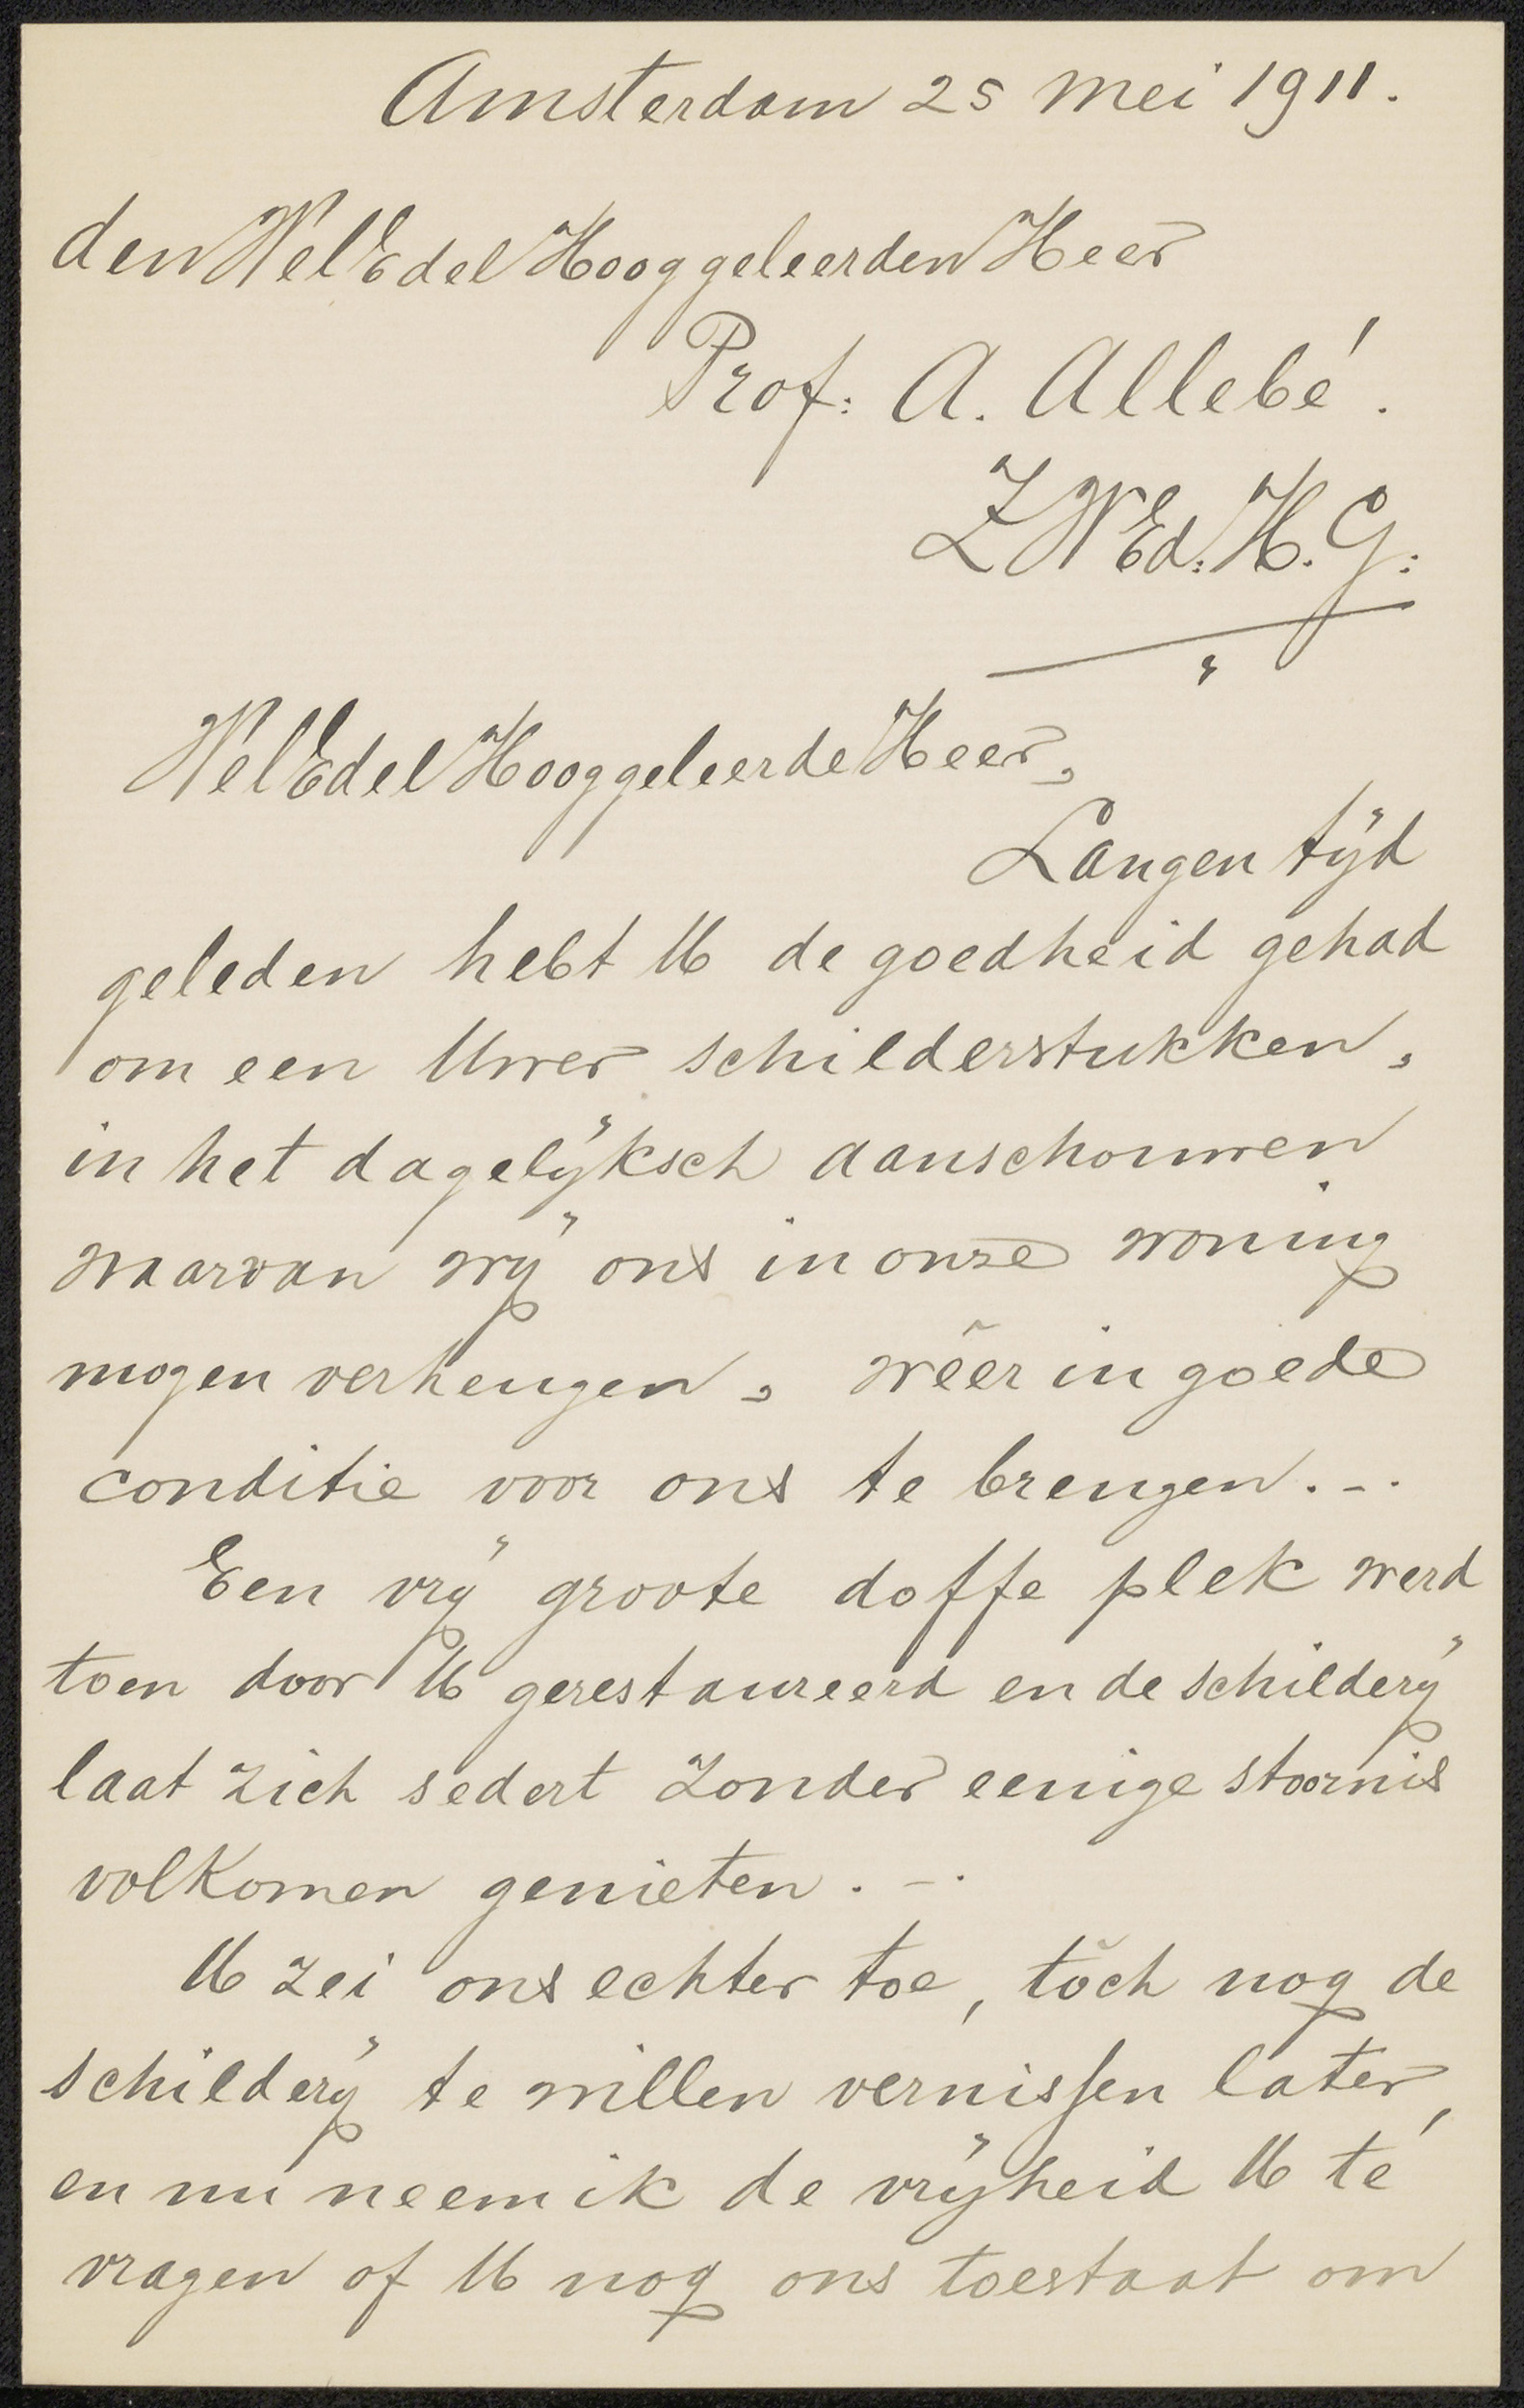 Amsterdam 25 Mei 1911.
den WelEdelHooggeleerden Heer
Prof: A. Allebé.
ZWEd: H. G:
WelEdelHooggeleerde Heer,
Langen tijd
geleden hebt U de goedheid gehad
om een Uwer schilderstukken,
in het dagelijksch aanschouwen
waarvan wij ons in onze woning
mogen verheugen, wêer in goede
conditie voor ons te brengen. -.
Een vrij groote doffe plek werd
toen door U gerestaureerd en de schilderij
laat zich sedert zonder eenige stoornis
volkomen genieten. -.
U zei ons echter toe, tŏch nog de
schilderij te willen vernissen later,
en nu neem ik de vrijheid U te
vragen of U nog ons toestaat om